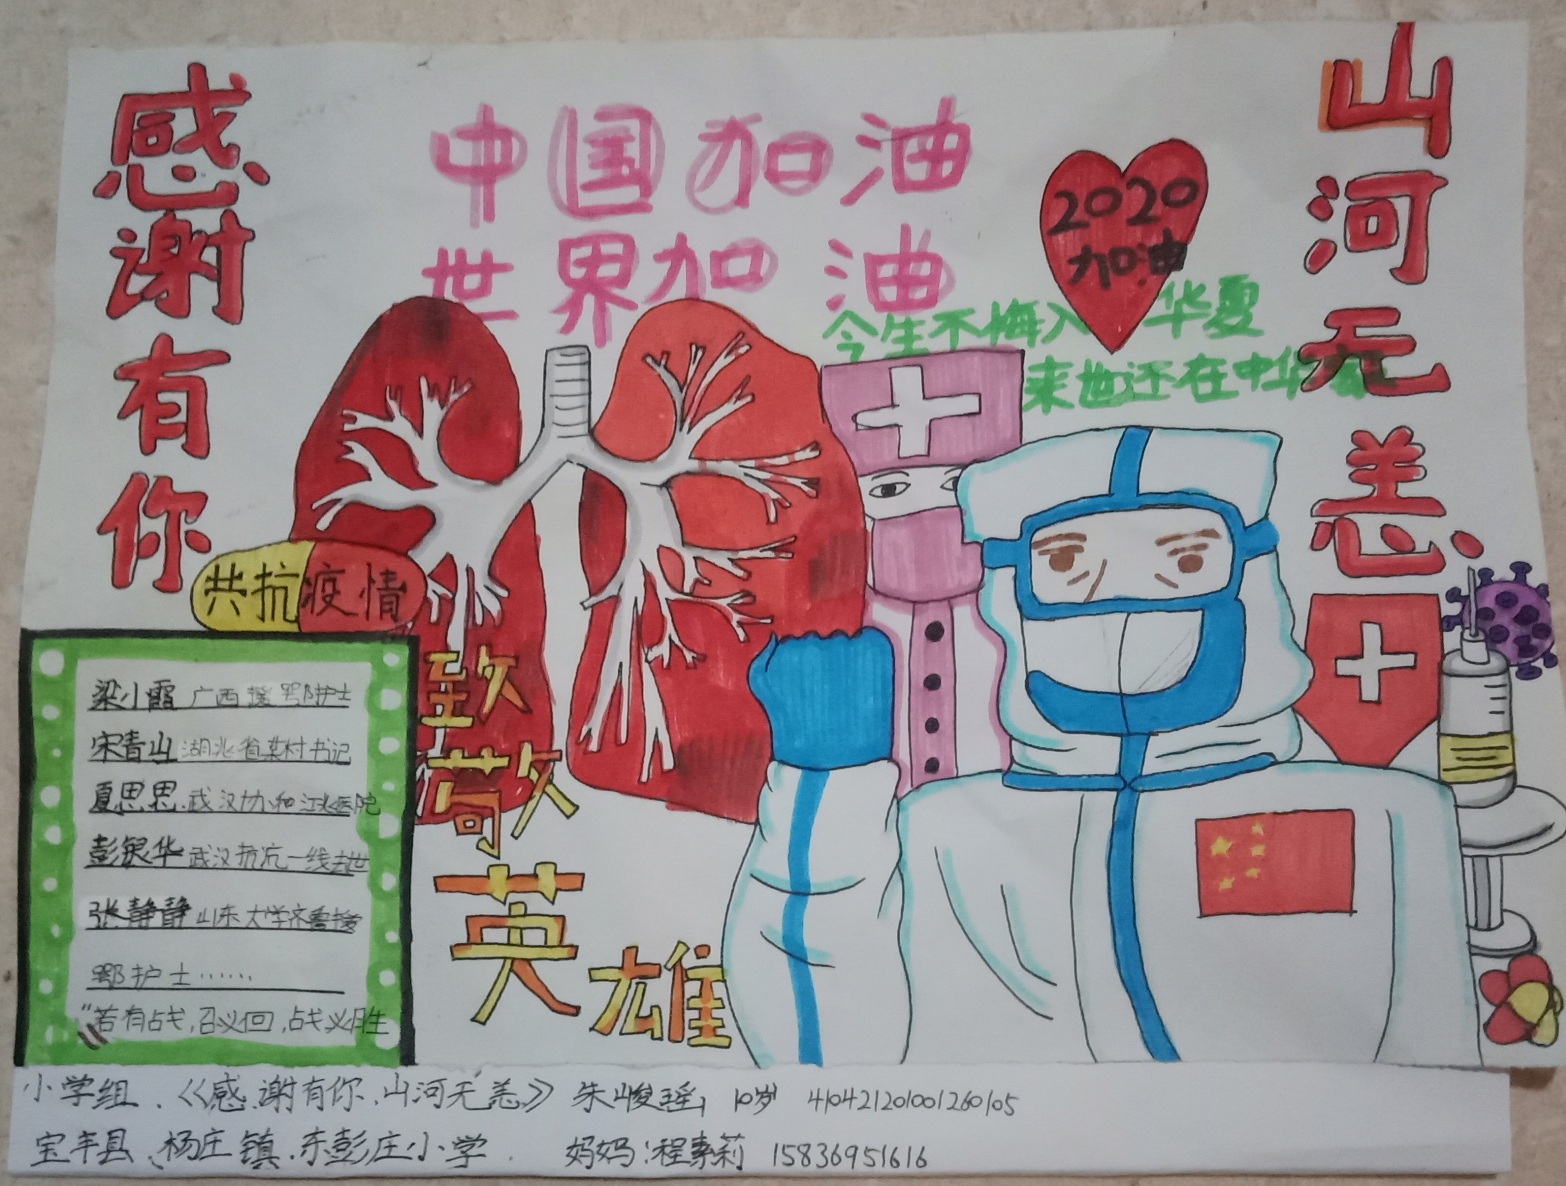 感谢有你
中国加油
世界加油
2020
加油
山河无恙
今生不悔入华夏
来世还在中华
共抗疫情
致敬
英雄
梁小霞 广西援鄂护士
宋青山 湖北省某村书记
夏思思 武汉协和江北医院
彭银华 武汉抗疫一线去世
张静静 山东大学齐鲁援
鄂护士……
"若有战,召必回,战必胜
小学组、《感谢有你、山河无恙》 朱峻瑶 10岁 410421201001260105
宝丰县、杨庄镇、东彭庄小学. 妈妈:程素莉 15836951616